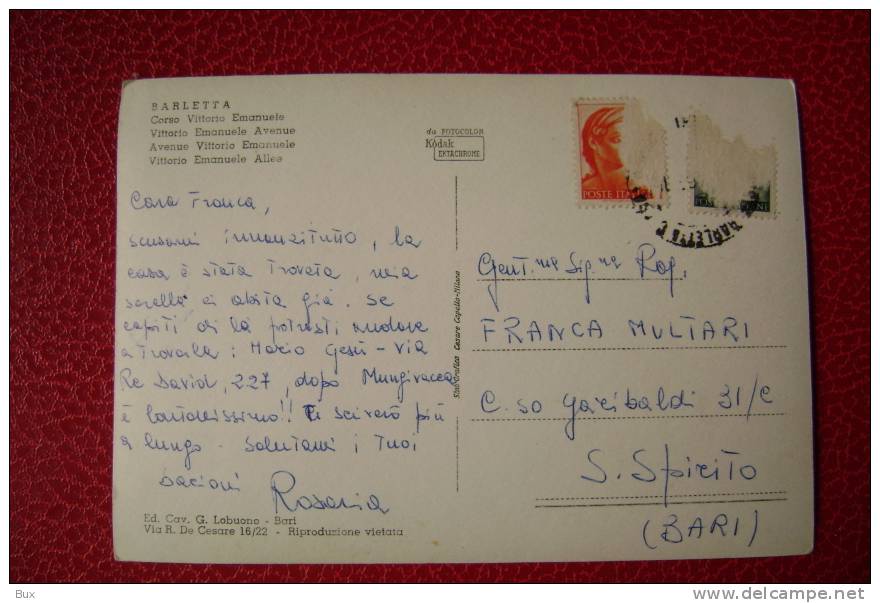 BARLETTA
Corso Vittorio Emanuele
Vittorio Emanuele Avenue
Avenue Vittorio Emanuele
Vittorio Emanuele Allee
da FOTOCOLOR
Kodak
EKTACHROME
POSTE ITAL
BARLETTA
Cara Franca,
scusami innanzitutto, la
casa è stata trovata, mia
sorella ci abita già. Se
capiti di là potresti andare
a trovarla: Mario Gesù - Via
Re David, 227, dopo Mungivacca
è lontanissimo!! Ti scriverò più
a lungo - Salutami i tuoi
bacioni
Rosaria
Stab. Grafico Cesare Capello-Milano
Gent.ma Sig.na Rag.
FRANCA MULTARI
C.so Garibaldi 31/C
S. Spirito
(BARI)
Ed. Cav. G. Lobuono - Bari
Via R. De Cesare 16/22 - Riproduzione vietata
Bux
http://www.delcampe.net